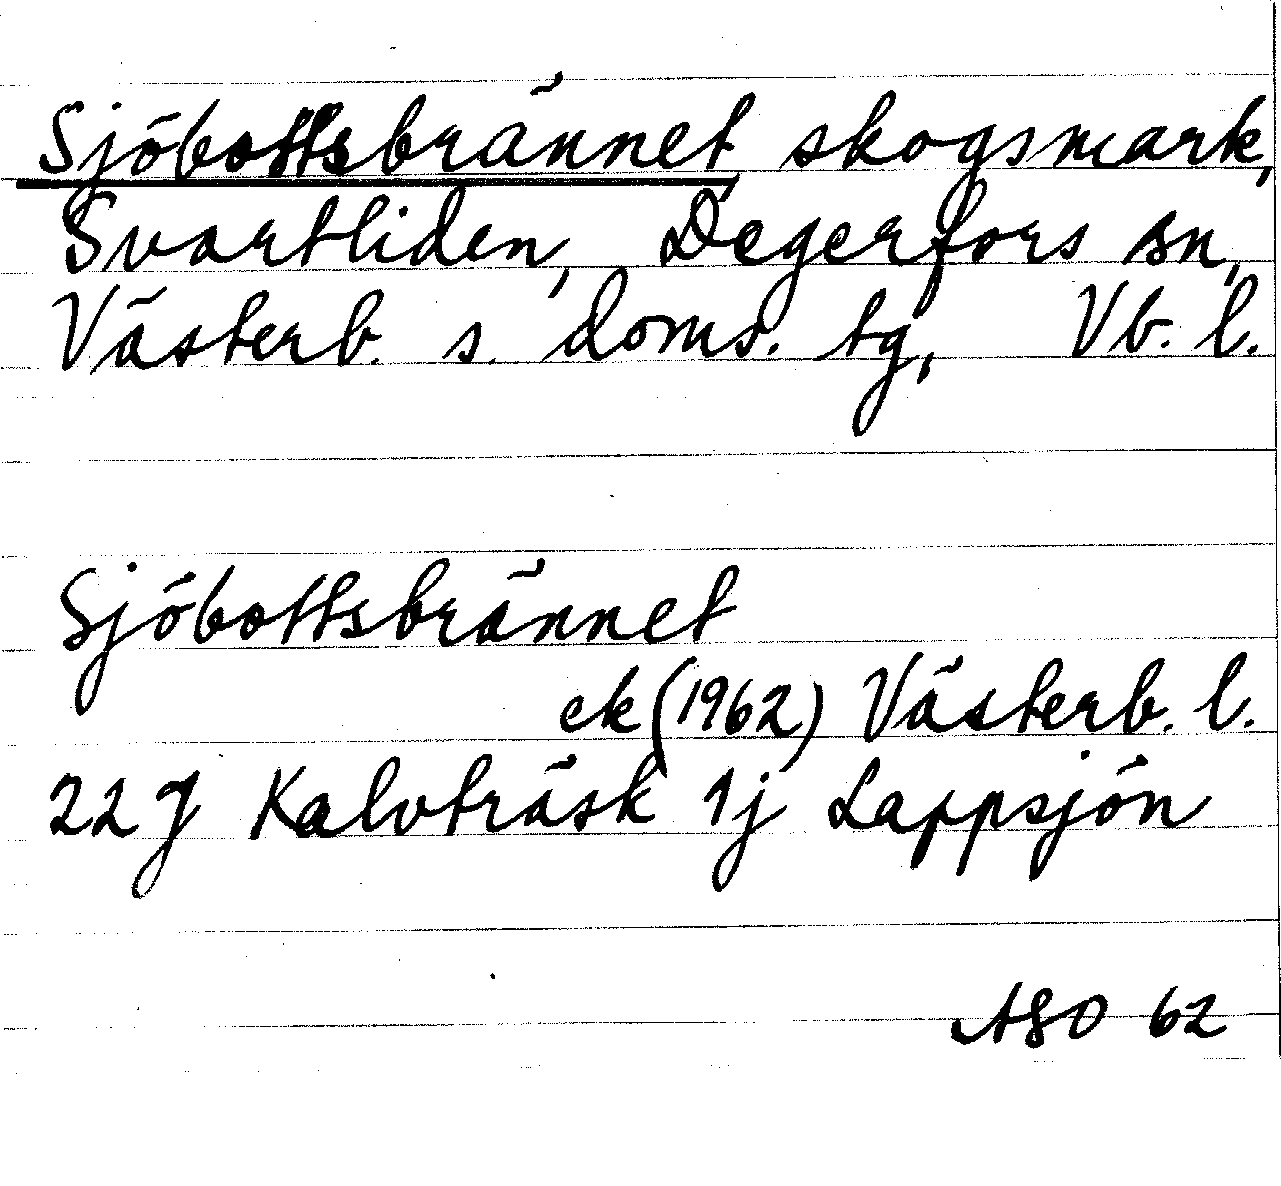 Sjöbottsbrännet skogsmark,
Svartliden, Degerfors sn,
Västerb. s. doms. tg, Vb. l.
Sjöbottsbrännet
ek (1962) Västerb. l.
22 J Kalvträsk 1j Lappsjön
ASO 62